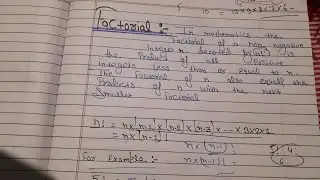 10 = 10x9x8x7x6
Factorial :- In mathematics the
Factorial of n non negative
integer n denoted by n! is
the Products of all Positive
Integers less than or equal to n.
The Factorial of n also equals the
Products of n with the next
Smaller Factorial
n! = nx[n-1]x[n-2]x[n-3]x ... x3x2x1
= nx[n-1]!
nx(n-1)!
For Example :- nx(n-1)!
5! =